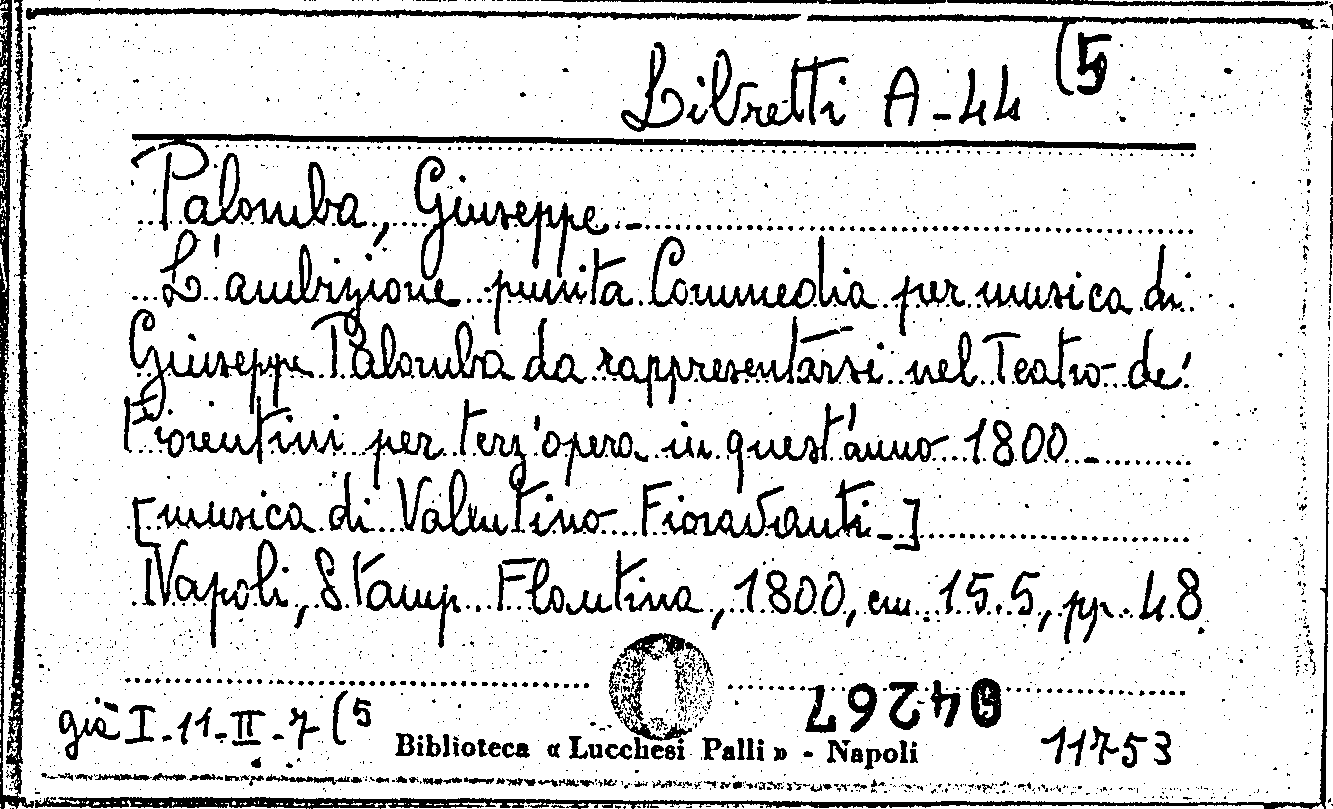 Libretti A-44 (5
Palomba, Giuseppe -
L'ambizione punita Commedia per musica di
Giuseppe Palomba da rappresentarsi nel Teatro de'
Fiorentini per terz'opera in quest'anno 1800 -
[musica di Valentino Fioravanti -]
Napoli, Stamp. Flautina, 1800, cm. 15.5, pp. 48
04267
già I-11-II-7 (5
Biblioteca « Lucchesi Palli » - Napoli
11753